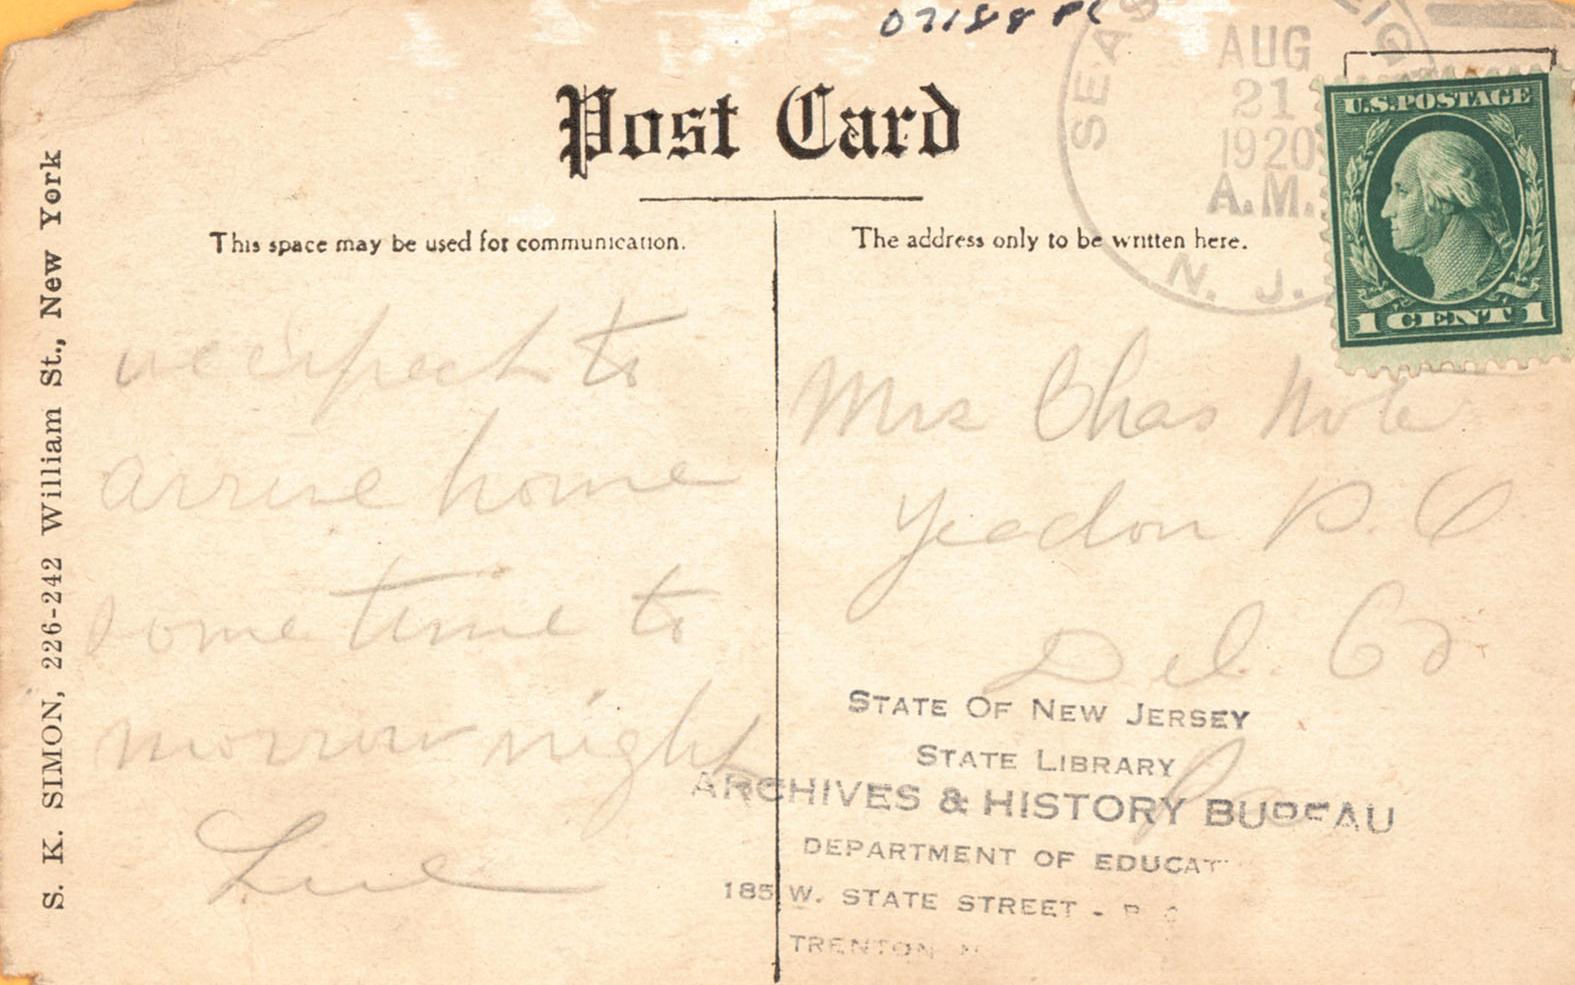 07188 PC
AUG
21
1920
A.M.
N. J.
U.S. POSTAGE
1 CENT 1
Post Card
This space may be used for communication.
The address only to be written here.
S. K. SIMON, 226-242 William St., New York
we expect to
arrive home
some time to
morrow night
Mrs Chas
Yeadon P. O
Del. Co.
Pa
STATE OF NEW JERSEY
STATE LIBRARY
ARCHIVES & HISTORY BUREAU
DEPARTMENT OF EDUCAT
185 W. STATE STREET -
TRENTON N